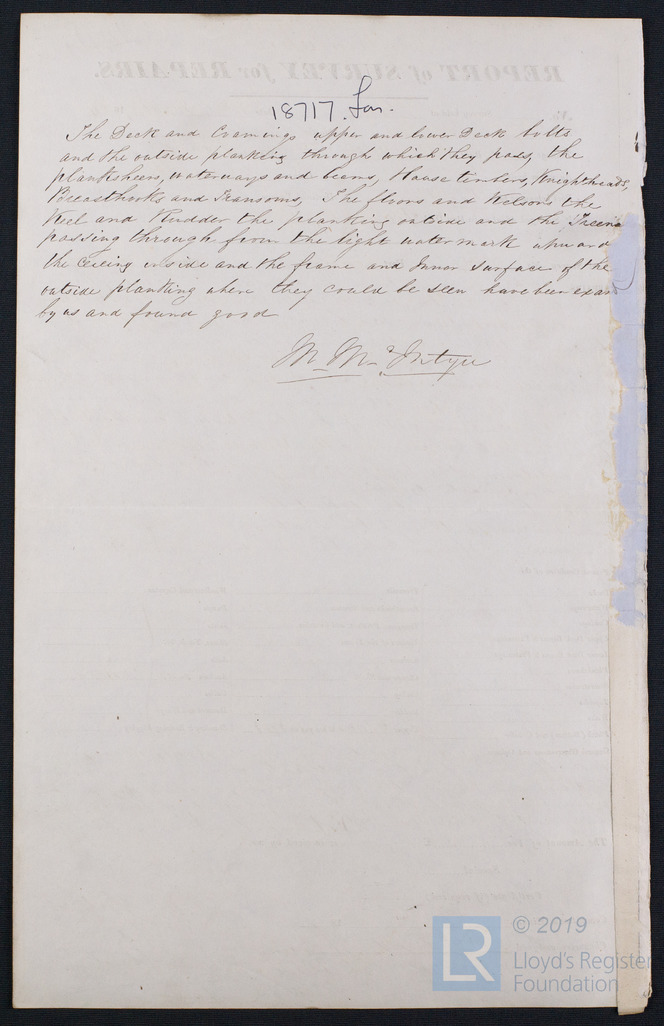 REPORT of SURVEY for REPAIRS.
18717. Lon.
The Deck and Comings upper and lower Deck bolts
and the outside planking through which they pass, the
planksheers, waterways and beams, Hause timbers, Knightheads,
Breasthooks and Transoms, The floors and Kelsons the
Keel and Rudder the planking outside and the Treena
passing through from the light water mark upward
the Ceiling inside and the frame and Inner surface of the
outside planking where they could be seen have been exam
by us and found good
M. McIntyre
LR
© 2019
Lloyd's Register
Foundation